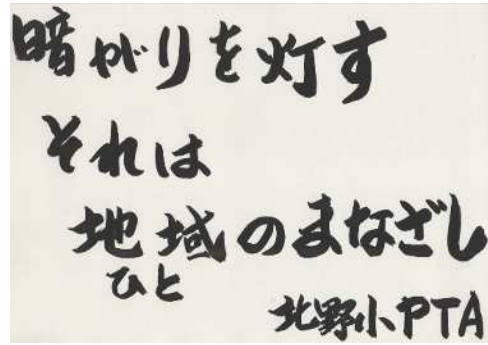 暗がりを灯す
それは
地域のまなざし
ひと
北野小PTA